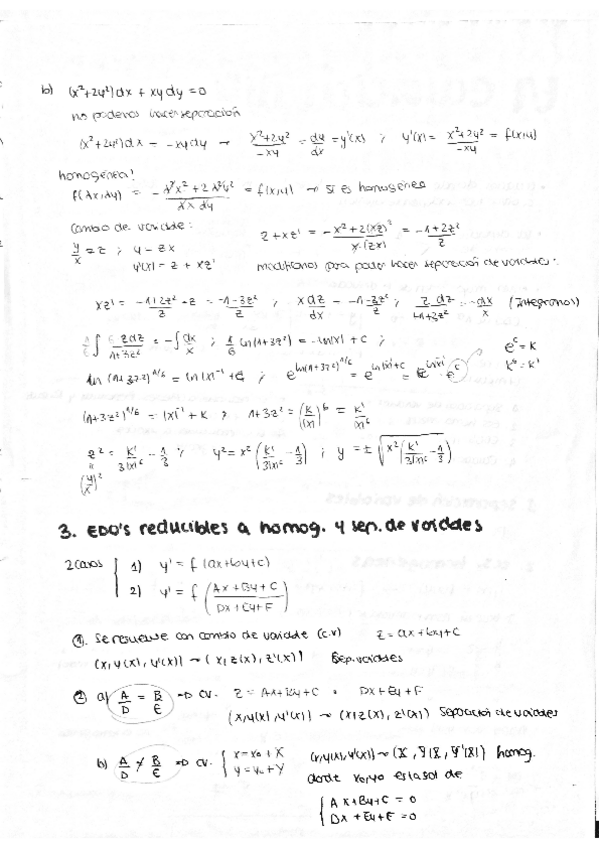 b) (x²+2y²)dx + xydy = 0
no podemos hacer separación
(x²+2y²)dx = -xydy → x²+2y²/-xy = dy/dx = y'(x) ; y'(x) = x²+2y²/-xy = f(x,y)
homogénea!
f(λx,λy) = - λ²x²+2λ²y²/λx λy = f(x,y) → sí es homogénea
Cambio de variable: z + xz' = -x²+2(xz)²/x·(zx) = -1+2z²/z
y/x = z ; y = zx
y'(x) = z + xz' modificamos para poder hacer separación de variables:
xz' = -1+2z²/z - z = -1-3z²/z ; x dz/dx = -1-3z²/z ; z dz/1+3z² = -dx/x (integramos)
1/6 ∫ 6zdz/1+3z² = -∫ dx/x ; 1/6 ln(1+3z²) = -ln|x| + C ; e^c = K
ln(1+3z²)^1/6 = ln|x|⁻¹ + C ; e^ln(1+3z²)^1/6 = e^ln|x|⁻¹+C = e^ln|x|⁻¹ · e^c K⁶ = K'
(1+3z²)^1/6 = |x|⁻¹ + K ; 1+3z² = (K/|x|)⁶ = K'/|x|⁶
z² = K'/3|x|⁶ - 1/3 ; y² = x²(K'/3|x|⁶ - 1/3) ; y = ±√x²(K'/3|x|⁶ - 1/3)
(y/x)²
3. EDO's reducibles a homog. y sep. de variables
2 casos { 1) y' = f(ax+by+c)
2) y' = f(Ax+By+C/Dx+Ey+F)
①. Se resuelve con cambio de variable (c.v) z = ax+by+c
(x,y(x),y'(x)) → (x,z(x),z'(x)) Sep. variables
② a) A/D = B/E ⇒ CV. z = Ax+By+C ó Dx+Ey+F
(x,y(x),y'(x)) → (x,z(x),z'(x)) Separación de variables
b) A/D ≠ B/E ⇒ CV. { x = x₀ + X (x,y(x),y'(x)) → (X,Y(X),Y'(X)) homog.
y = y₀ + Y donde x₀,y₀ es la sol de
{ Ax+By+C = 0
Dx+Ey+F = 0